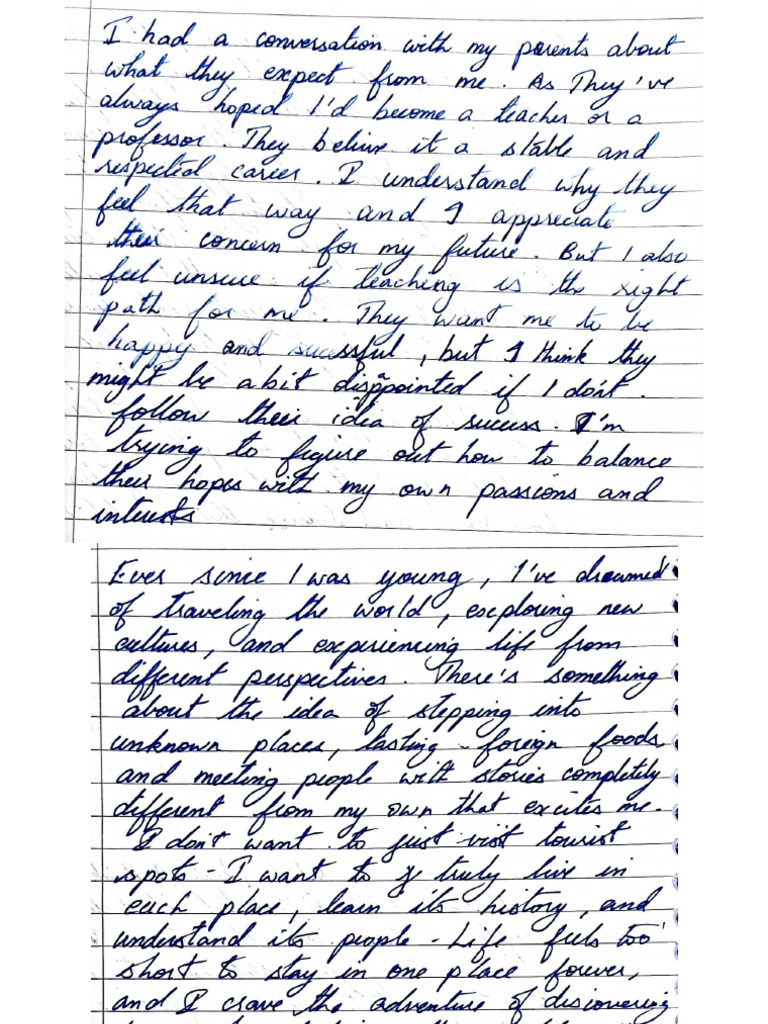 I had a conversation with my parents about
what they expect from me. As They've
always hoped I'd become a teacher or a
professor. They belive it a stable and
respected career. I understand why they
feel that way and I appreciate
their concern for my future. But I also
feel unsure if teaching is the right
path for me. They want me to be
happy and sucessful, but I think they
might be a bit disappointed if I don't.
follow their idea of success. I'm
trying to figure out how to balance
their hopes with my own passions and
interests
Ever since I was young, I've dreamed
of traveling the world, exploring new
cultures, and experiencing life from
different perspectives. There's something
about the idea of stepping into
unknown places, tasting foreign foods,
and meeting people with stories completly
different from my own that excites me.
I don't want to just visit tourist
spots - I want to truly live in
each place, learn its history, and
understand its people - Life feels too
short to stay in one place forever,
and I crave the adventure of discovering